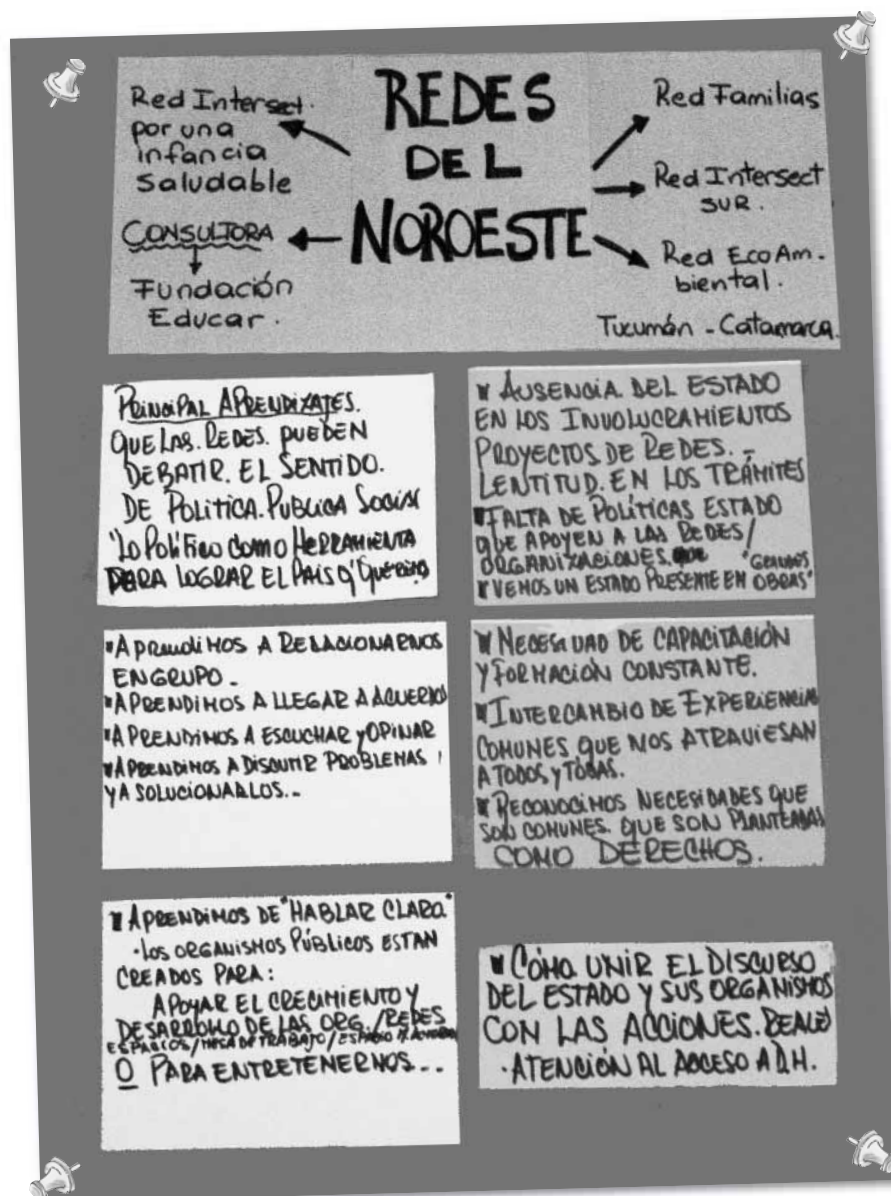 REDES
DEL
NOROESTE
Red Intersect.
por una
infancia
Saludable
CONSULTORA
Fundación
Educar.
Red Familias
Red Intersect
SUR.
Red EcoAm-
biental.
Tucumán - Catamarca.
PRINCIPAL APRENDIZAJES.
QUE LAS REDES PUEDEN
DEBATIR. EL SENTIDO.
DE POLITICA. PUBLICA SOCIAL
"LO POLÍTICO COMO HERRAMIENTA
PARA LOGRAR EL PAÍS Q' QUEREMOS
AUSENCIA DEL ESTADO
EN LOS INVOLUCRAMIENTOS
PROYECTOS DE REDES. -
LENTITUD. EN LOS TRÁMITES
FALTA DE POLÍTICAS ESTADO
QUE APOYEN A LAS REDES/
ORGANIZACIONES.
"GRANDES
VEMOS UN ESTADO PRESENTE EN OBRAS"
APRENDIMOS A RELACIONARNOS
EN GRUPO -
APRENDIMOS A LLEGAR A ACUERDOS
APRENDIMOS A ESCUCHAR y OPINAR
APRENDIMOS A DISCUTIR PROBLEMAS
Y A SOLUCIONARLOS..-
NECESIDAD DE CAPACITACIÓN
Y FORMACIÓN CONSTANTE.
INTERCAMBIO DE EXPERIENCIAS
COMUNES QUE NOS ATRAVIESAN
A TODOS, y TODAS.
RECONOCIMOS NECESIDADES QUE
SON COMUNES. QUE SON PLANTEADAS
COMO DERECHOS.
APRENDIMOS DE "HABLAR CLARO"
·LOS ORGANISMOS PÚBLICOS ESTAN
CREADOS PARA:
APOYAR EL CRECIMIENTO Y
DESARROLLO DE LAS ORG./REDES
ESPACIOS/MESA DE TRABAJO/ESPACIO
O PARA ENTRETENERNOS...
CÓMO UNIR EL DISCURSO
DEL ESTADO Y SUS ORGANISMOS
CON LAS ACCIONES. REALES
·ATENCIÓN AL ACCESO A DH.